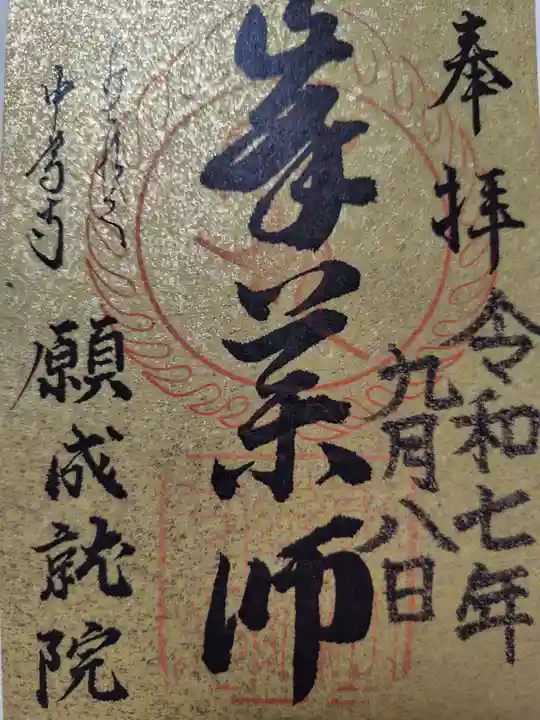 奉拝
令和七年
九月八日
峯薬師
中尊寺
願成就院